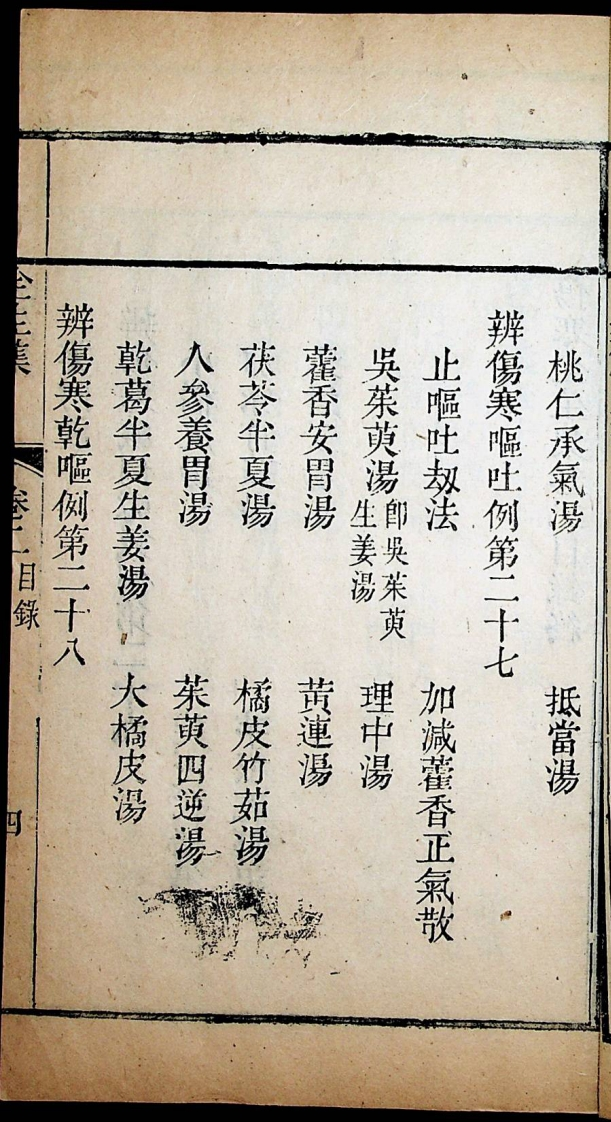 桃仁承氣湯　抵當湯
辨傷寒嘔吐例第二十七
止嘔吐刼法　加減藿香正氣散
吳茱萸湯　即吳茱萸生姜湯　理中湯
藿香安胃湯　黃連湯
茯苓半夏湯　橘皮竹茹湯
人參養胃湯　茱萸四逆湯
乾葛半夏生姜湯　大橘皮湯
辨傷寒乾嘔例第二十八
全生集　卷二目錄　四